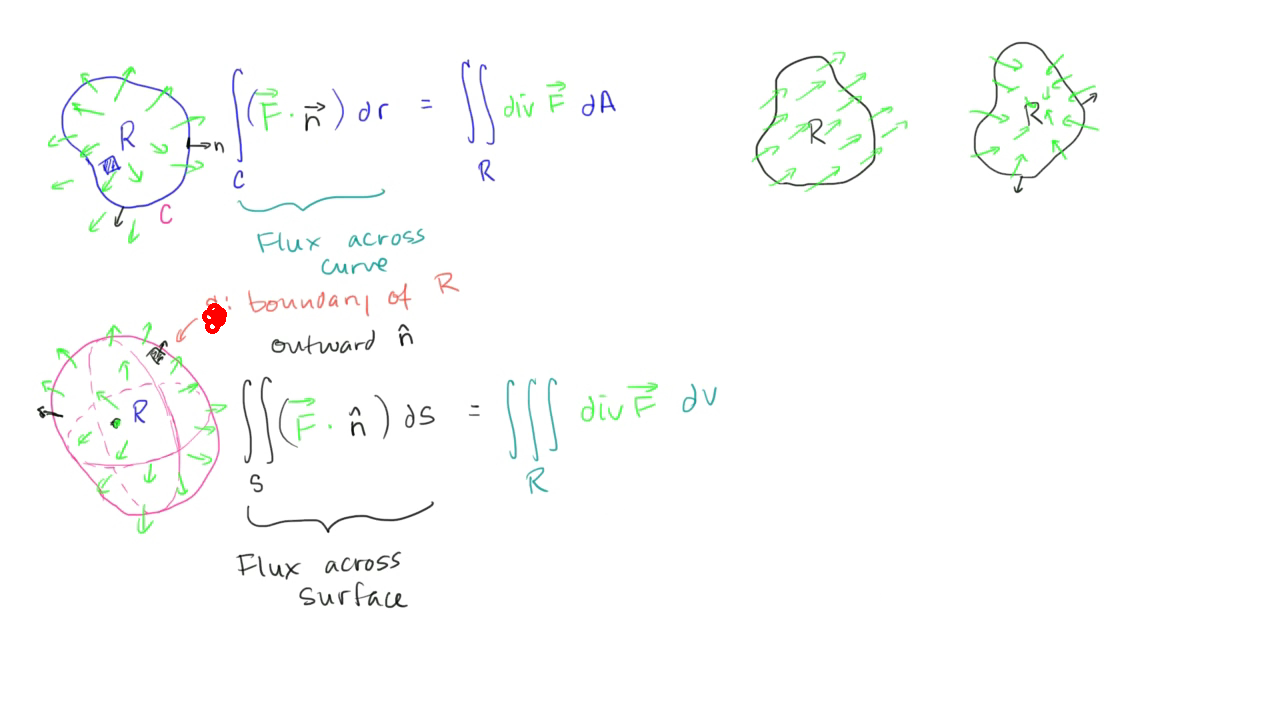 R
n
C
∫_C (F⃗ · n⃗) dr = ∬_R div F⃗ dA
Flux across
curve
: boundary of R
outward n̂
R
∬_S (F⃗ · n̂) dS = ∭_R div F⃗ dV
Flux across
surface
R
R